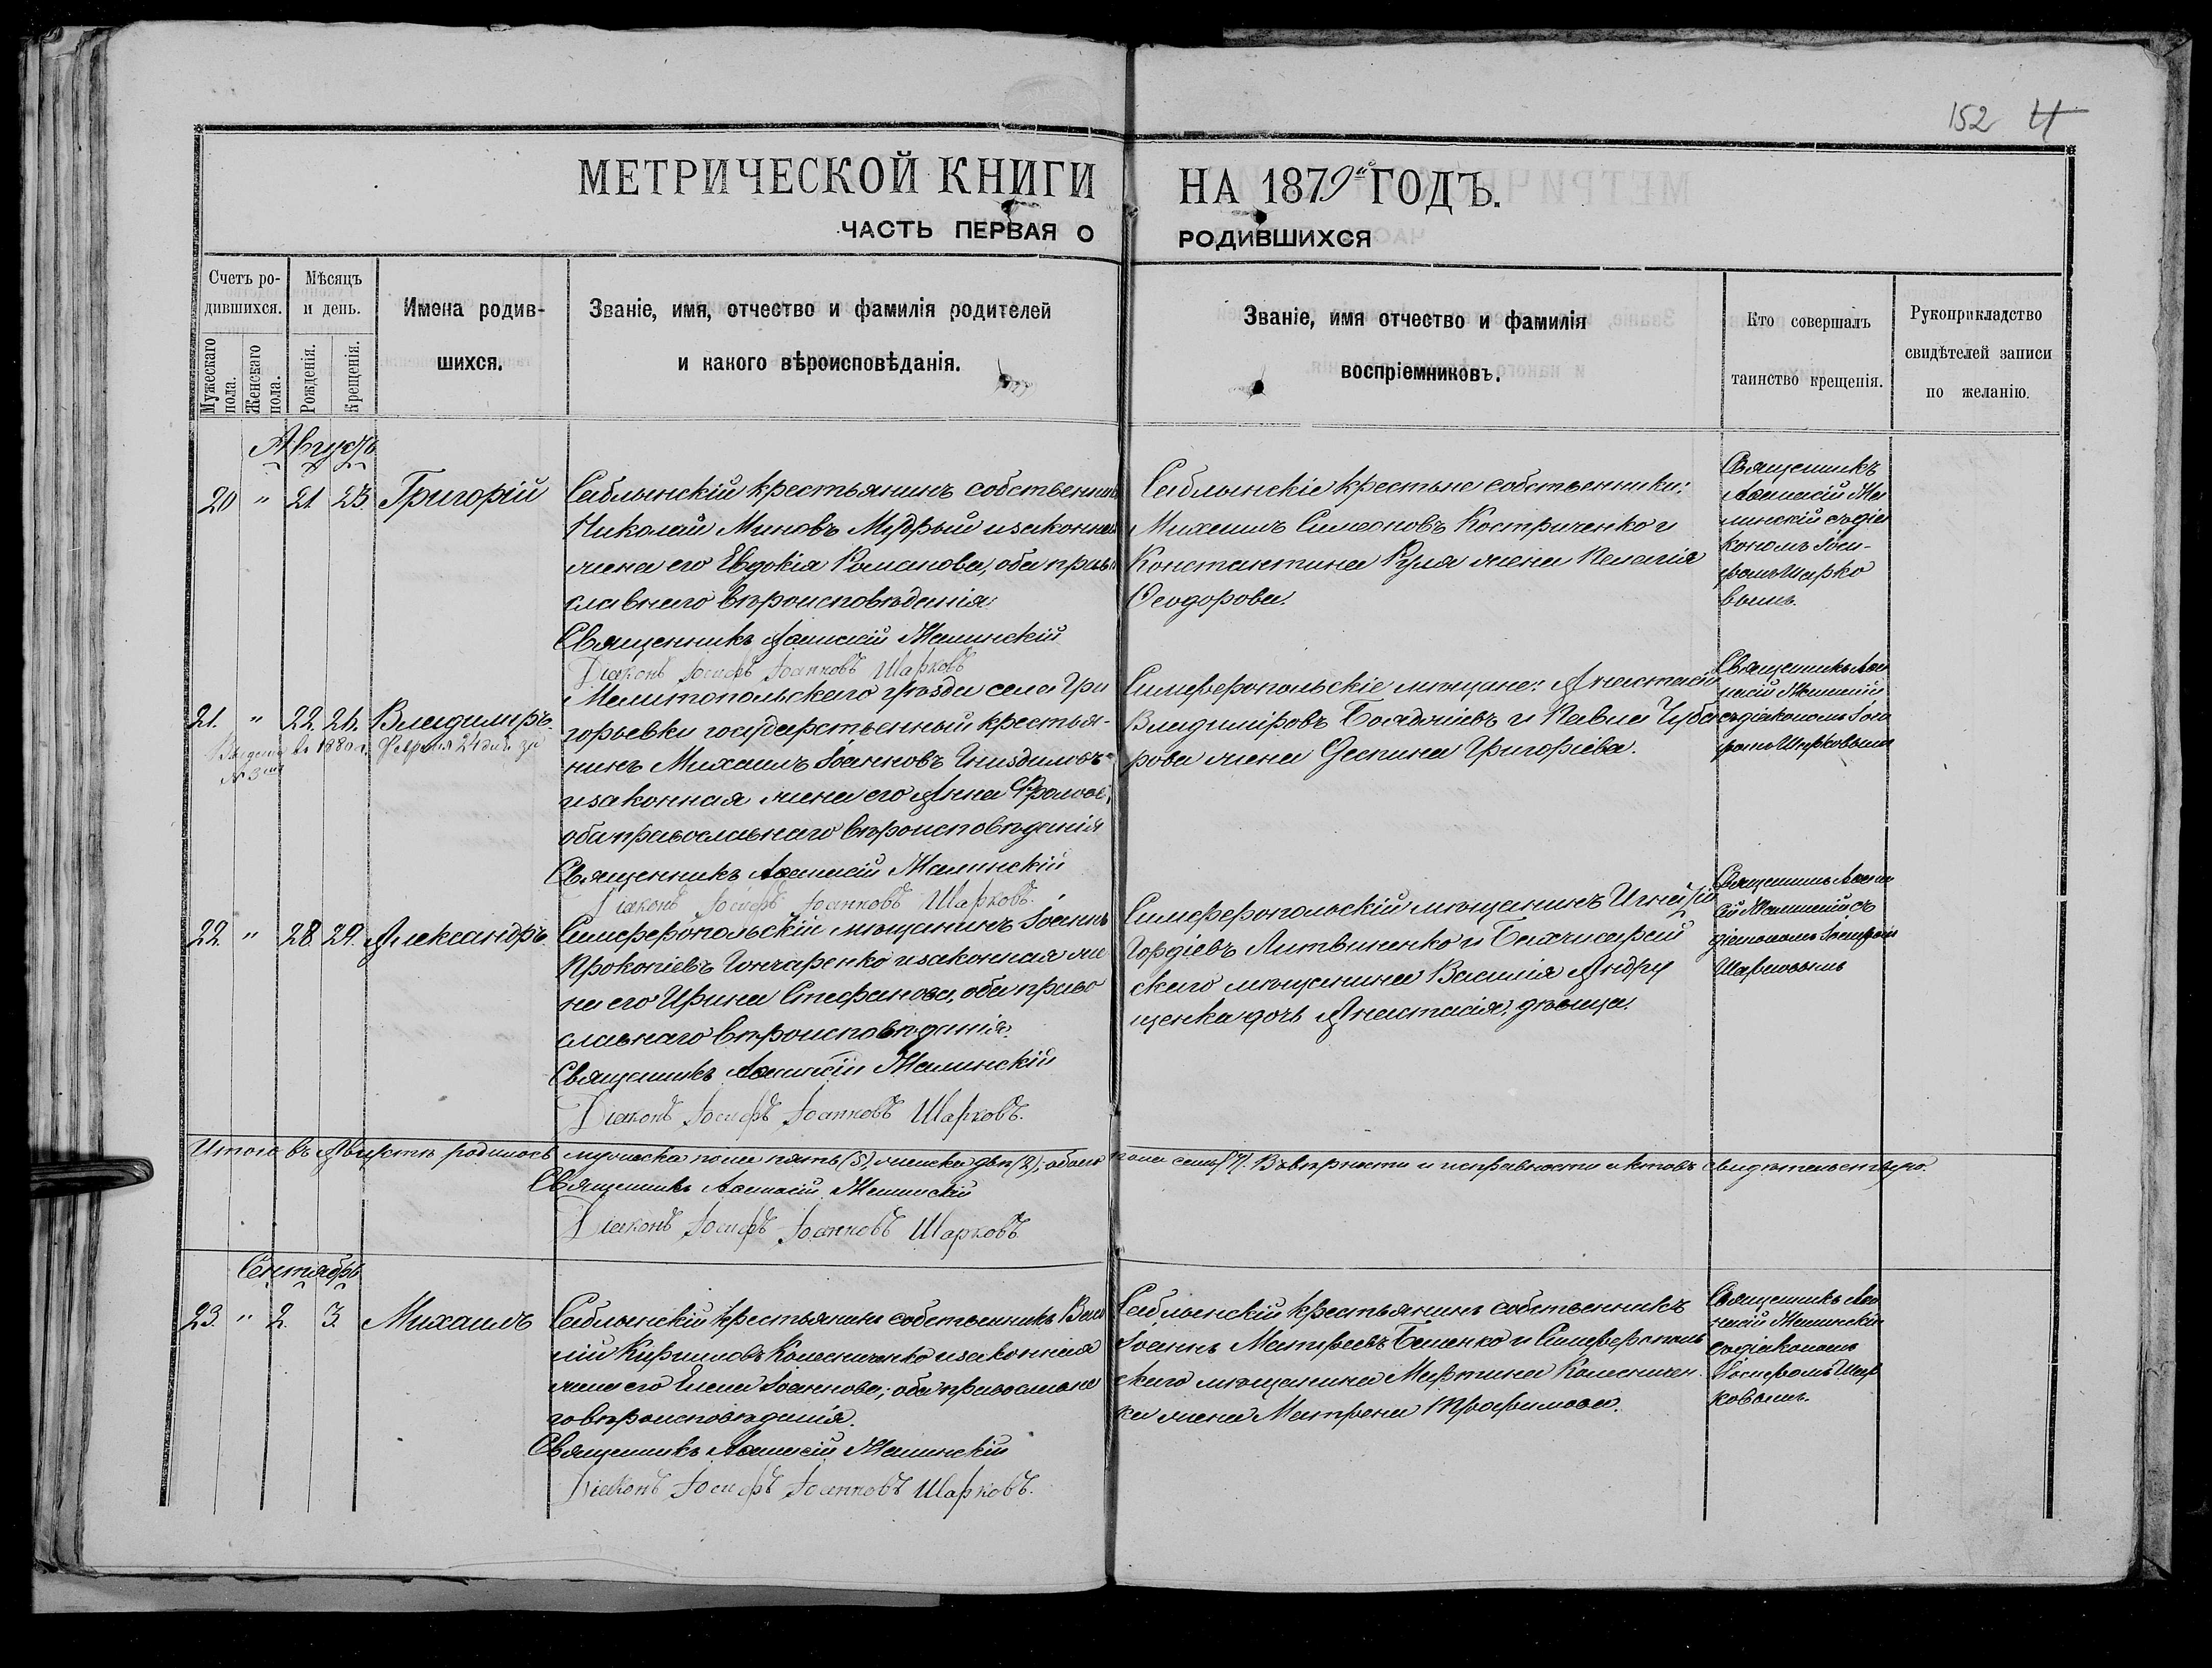 152 4
МЕТРИЧЕСКОЙ КНИГИ НА 1879й ГОДЪ.
ЧАСТЬ ПЕРВАЯ О РОДИВШИХСЯ
Счетъ ро-
дившихся.
Мужескаго пола.
Женскаго пола.
Мѣсяцъ
и день.
Рожденія.
Крещенія.
Имена родив-
шихся.
Званіе, имя, отчество и фамилія родителей
и какого вѣроисповѣданія.
Званіе, имя отчество и фамилія
воспріемниковъ.
Кто совершалъ
таинство крещенія.
Рукоприкладство
свидѣтелей записи
по желанію.
Августъ
20 " 21 23. Григорій
Саблынскій крестьянинъ собственникъ
Николай Миновъ Мудрый и законная
жена его Евдокія Романова, оба право
славнаго вѣроисповѣданія.
Священникъ Аѳанасій Жалинскій
Діаконъ Іосифъ Іоанновъ Шарковъ
Саблынскіе крестьяне собственники:
Михаилъ Симеоновъ Костриченко и
Константина Руля жена Пелагія
Ѳеодорова.
Священникъ
Аѳанасій Жа
линскій съ діа
кономъ Іоси-
фомъ Шарко
вымъ.
21. " 22. 26. Владимиръ
въ 1880 г. Февраля 24 дня за
№ 3
Мелитопольскаго уѣзда села Гри
горьевки государственный крестья-
нинъ Михаилъ Іоанновъ Гниздиловъ
и законная жена его Анна Фролова,
оба православнаго вѣроисповѣданія
Священникъ Аѳанасій Жалинскій
Діаконъ Іосифъ Іоанновъ Шарковъ.
Симферопольскіе мѣщане: Анастасій
Владиміровъ и Павла Чуба
рова жена Деспина Григоріева.
Священникъ Аѳа
насій Жалинскій
съ діакономъ Іоси
фомъ Шарковымъ
22. " 28 29. Александръ.
Симферопольскій мѣщанинъ Іоаннъ
Прокопіевъ Гончаренко и законная же
на его Ирина Стефанова, оба право
славнаго вѣроисповѣданія.
Священникъ Аѳанасій Жалинскій
Діаконъ Іосифъ Іоанновъ Шарковъ.
Симферопольскій мѣщанинъ Игнатій
Гордіевъ Литвиненко и Бахчисарай
скаго мѣщанина Василія Андру
щенка дочь Анастасія, дѣвица.
Священникъ Аѳанас
ій Жалинскій съ
діакономъ Іосифомъ
Шарковымъ
Итого въ Августѣ родилось мужеска пола пять (5), женска два (2); обоего пола семь (7). Въ вѣрности и исправности актовъ свидѣтельствую.
Священникъ Аѳанасій Жалинскій
Діаконъ Іосифъ Іоанновъ Шарковъ
Сентябрь
23. " 2. 3. Михаилъ
Саблынскій крестьянинъ собственникъ Васи
лій Кирилловъ Колесниченко и законная
жена его Елена Іоаннова; оба православна
го вѣроисповѣданія.
Священникъ Аѳанасій Жалинскій
Діаконъ Іосифъ Іоанновъ Шарковъ.
Саблынскій крестьянинъ собственникъ
Іоаннъ Матфеевъ Баленко и Симферополь
скаго мѣщанина Мартина Колесничен
ка жена Матрена Трофимова.
Священникъ Аѳа
насій Жалинскій
съ діакономъ
Іосифомъ Шар
ковымъ.